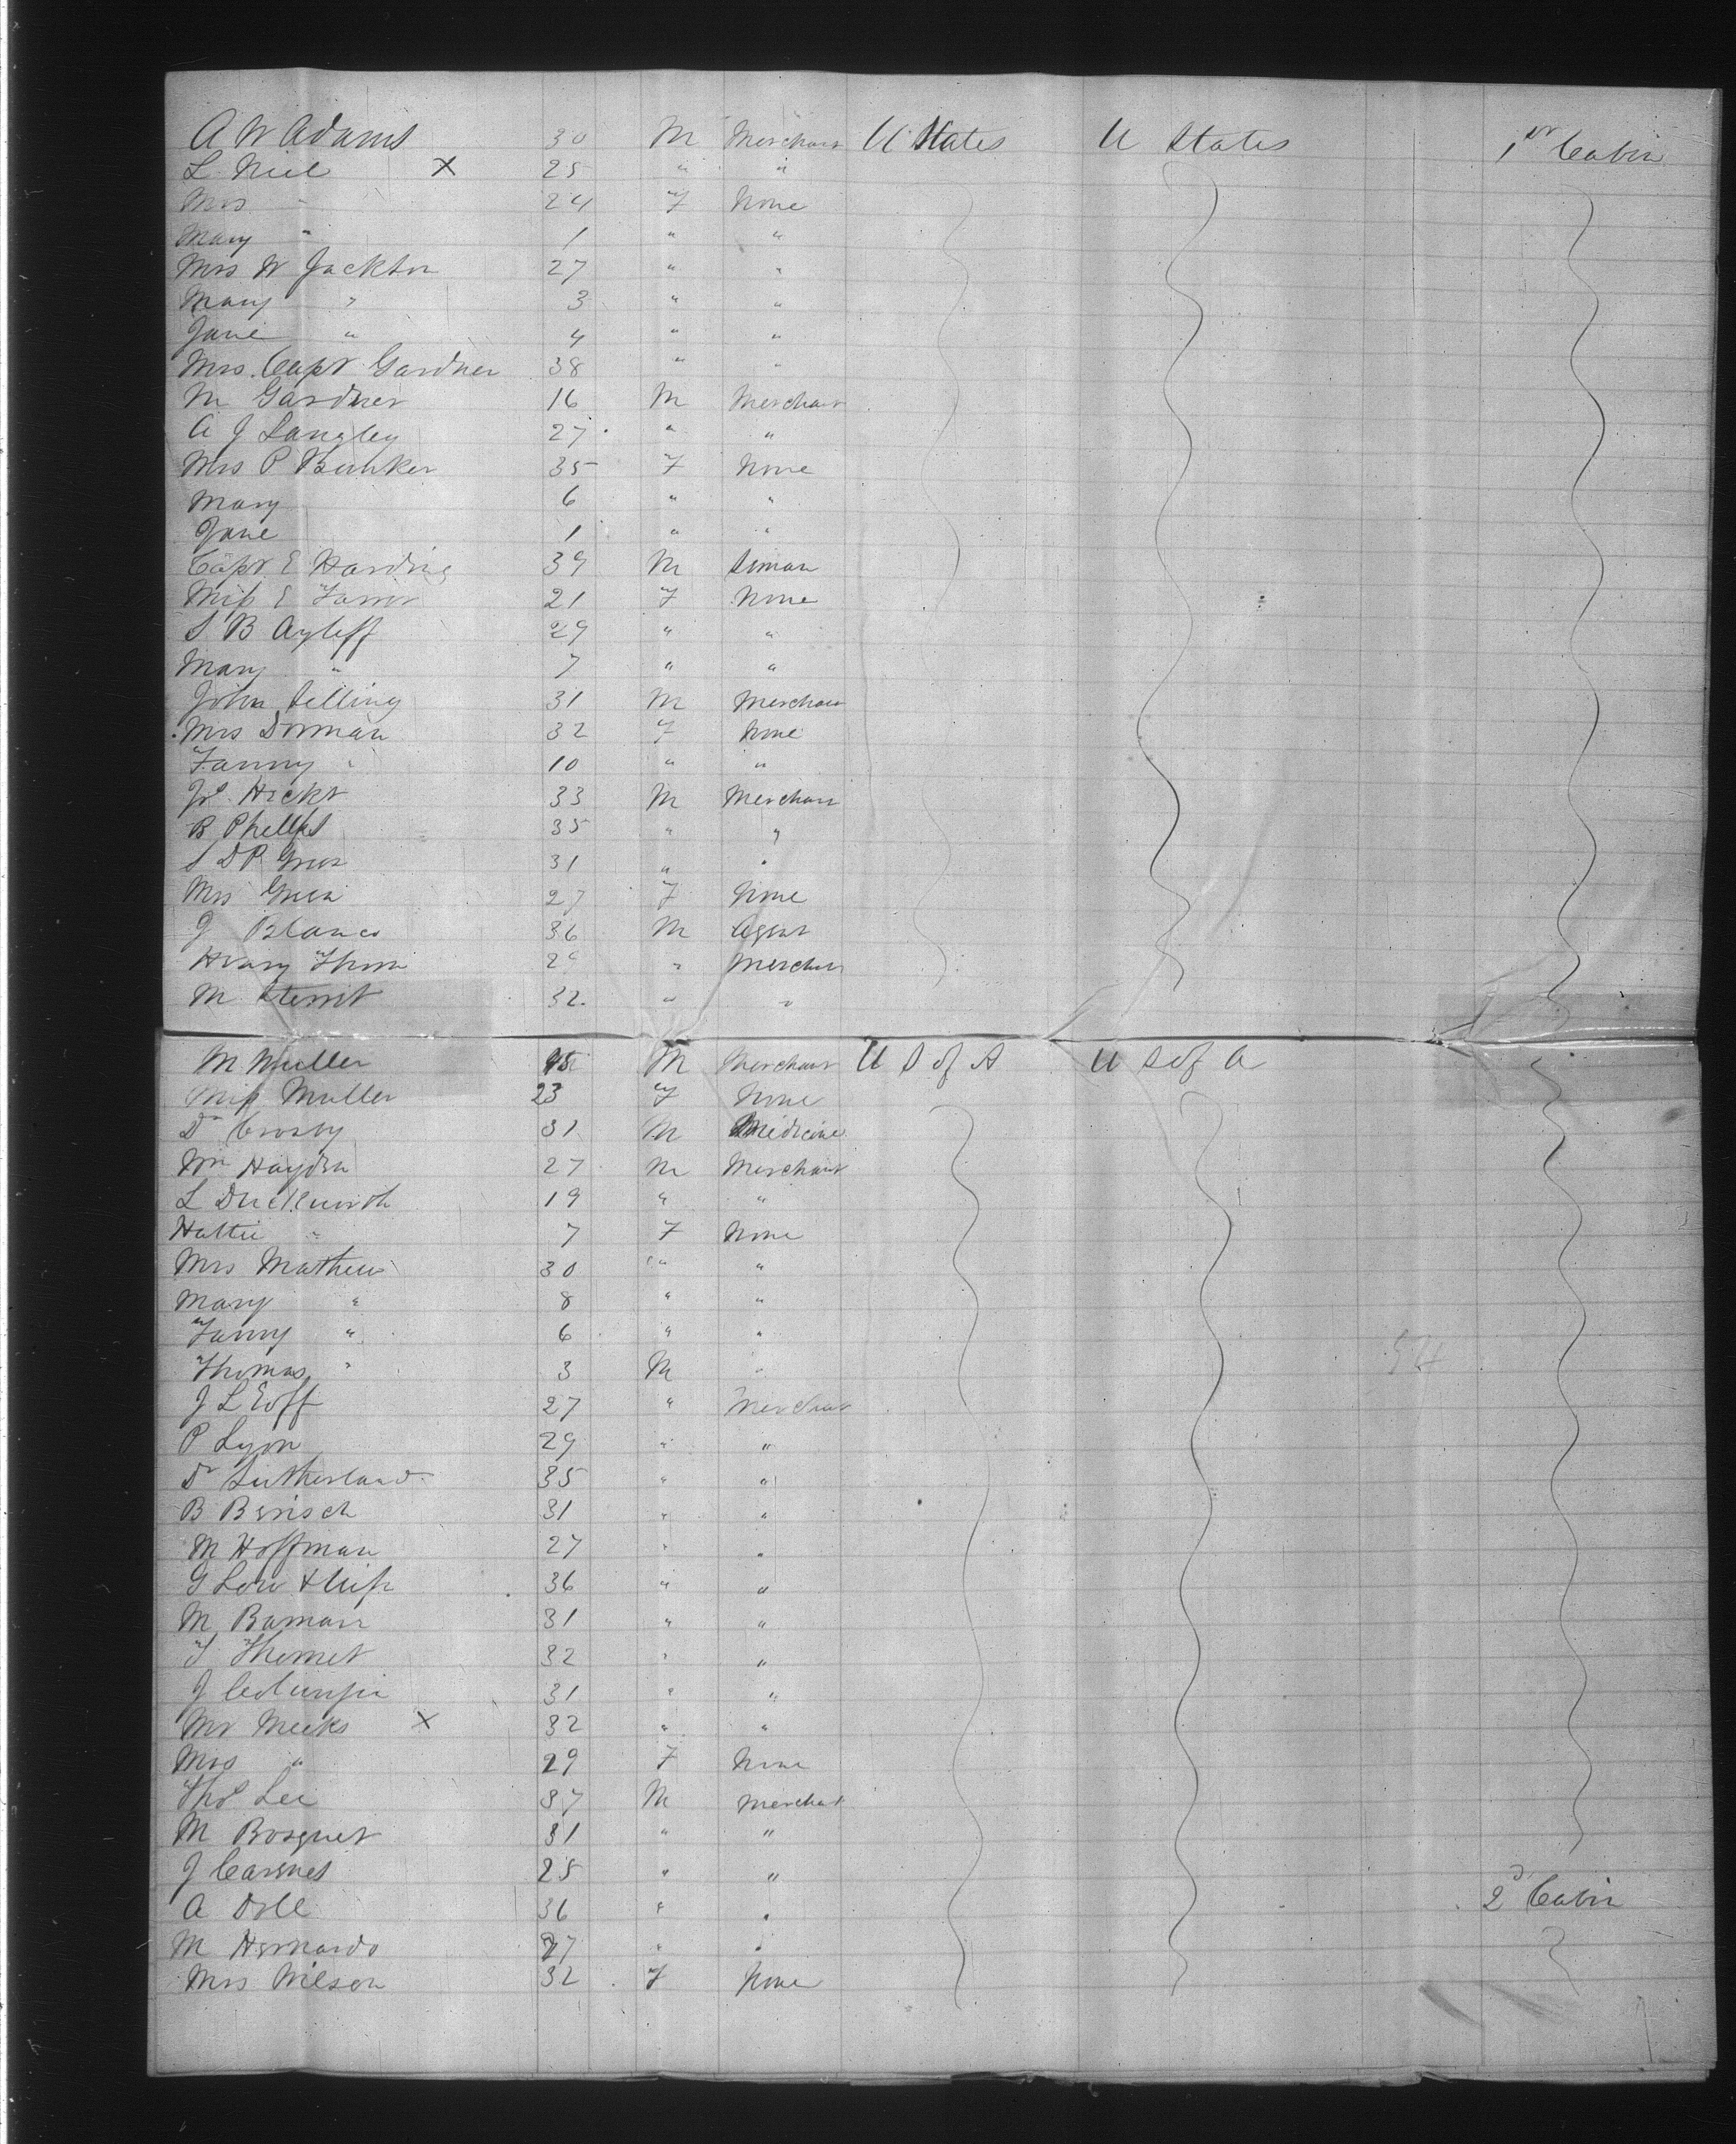 A W Adams 30 M Merchant U States U States 1st Cabin
L Niel X 25 " "
Mrs " 24 F None
Mary " 1 " "
Mrs W Jackson 27 " "
Mary " 3 " "
Jane " 4 " "
Mrs. Capt Gardner 38 " "
M Gardner 16 M Merchant
A J Langley 27 " "
Mrs P Bunker 35 F None
Mary 6 " "
Jane 1 " "
Capt E Harding 39 M Siman
Miss E 21 F None
S B Ayleff 29 " "
Mary " 7 " "
John Selling 31 M Merchant
Mrs Dorman 32 F None
Fanny " 10 " "
Js. Hicks 33 M Merchant
B Phellps 35 " "
S D P 31 " "
Mrs 27 F None
J Blanco 36 M Agent
Henry Thom 29 " Merchant
M Sterrit 32 " "
M Muller 45 M Merchant U S of A U S of A
Miss Muller 23 F None
Dr Crosby 31 M Medicine
Wm Hayden 27 M Merchant
L Duckworth 19 " "
Hattie " 7 F None
Mrs Mathews 30 " "
Mary " 8 " "
Fanny " 6 " "
Thomas " 3 M "
J L Eoff 27 " Merchant
P Lyon 29 " "
Dr Sutherland 35 " "
B Berisch 31 " "
M Hoffman 27 " "
G Low & Wife 36 " "
M Baman 31 " "
T Themet 32 " "
J 31 " "
Mr Meeks X 32 " "
Mrs " 29 F None
Thos Lee 37 M Merchat
M Bosquet 31 " "
J Carsnes 25 " "
A Doll 36 " " 2d Cabin
M Hernardo 27 " "
Mrs Wilson 32 F None